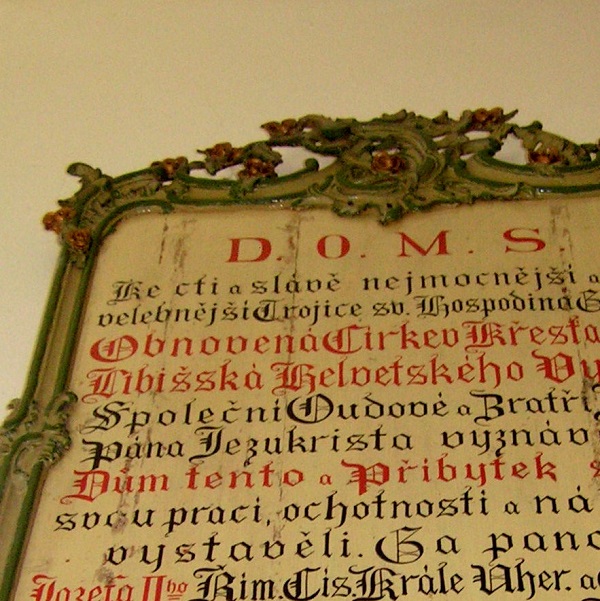 D. O. M. S.
Ke cti a slávě nejmocnější a
velebnější Trojice sv. Hospodina
Obnovená Církev Křesťa
Libišská Helvetského Vy
Společní Oudové a Bratři
Pána Jezukrista vyznáv
Dům tento a Přibytek
svou praci, ochotnosti a ná
vystavěli. Ga pano
Jozefa II ho Řim. Cís. Krále Uher. a